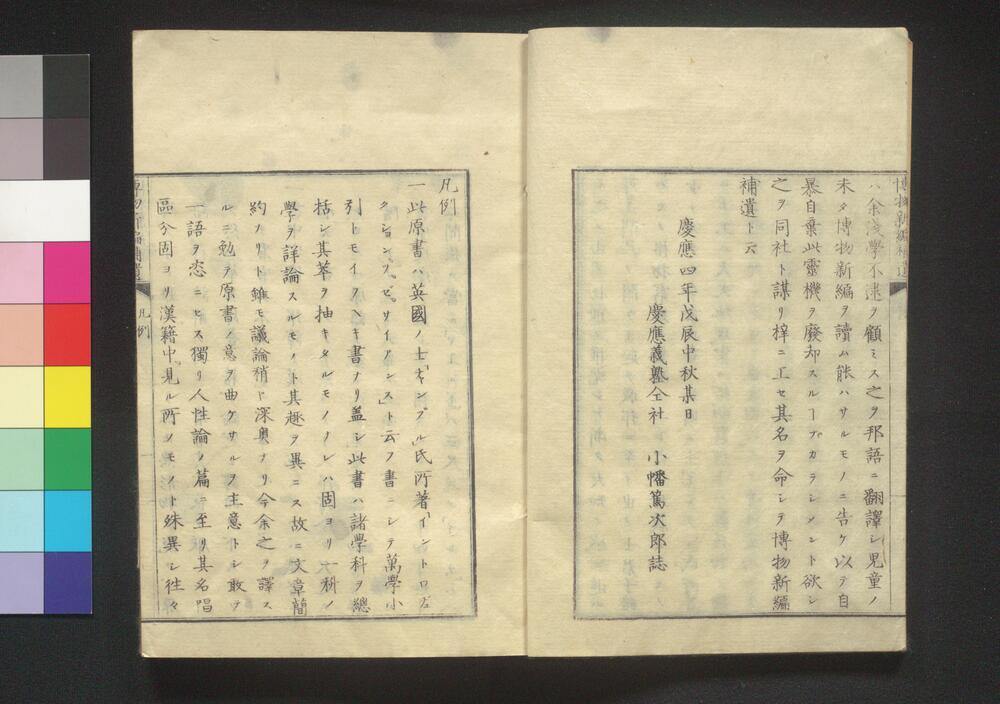 博物新編補遺
ハ余浅學不逮ヲ顧ミス之ヲ邦語ニ翻譯シ児童ノ
未タ博物新編ヲ讀ム能ハサルモノニ告ケ以テ自
暴自棄此靈機ヲ廃却スルヿナカラシメント欲シ
之ヲ同社ト謀リ梓ニ工セ其名ヲ命シテ博物新編
補遺ト云
慶應四年戊辰中秋某日
慶應義塾仝社 小幡篤次郎誌
凡例
一此原書ハ英國ノ士「チャンブル」氏所著「イントロヂュ
クションヲブゼサイアンシスト云フ書ニシテ萬學小
引トモイフヘキ書ナリ盖シ此書ハ諸學科ヲ總
括シ其萃ヲ抽キタルモノノレハ固ヨリ大
學ヲ詳論スルモノト其趣ヲ異ニス故ニ文章簡
約ナリト雖モ議論稍ト深奥ナリ今余之ヲ譯ス
ルニ勉テ原書ノ意ヲ曲ケサルヲ主意トシ敢テ
一語ヲ恣ニセス獨リ人性論ノ篇ニ至リ其名唱
區分固ヨリ漢籍中見ル所ノモノト殊異シ徃々
博物新編補遺
凡例